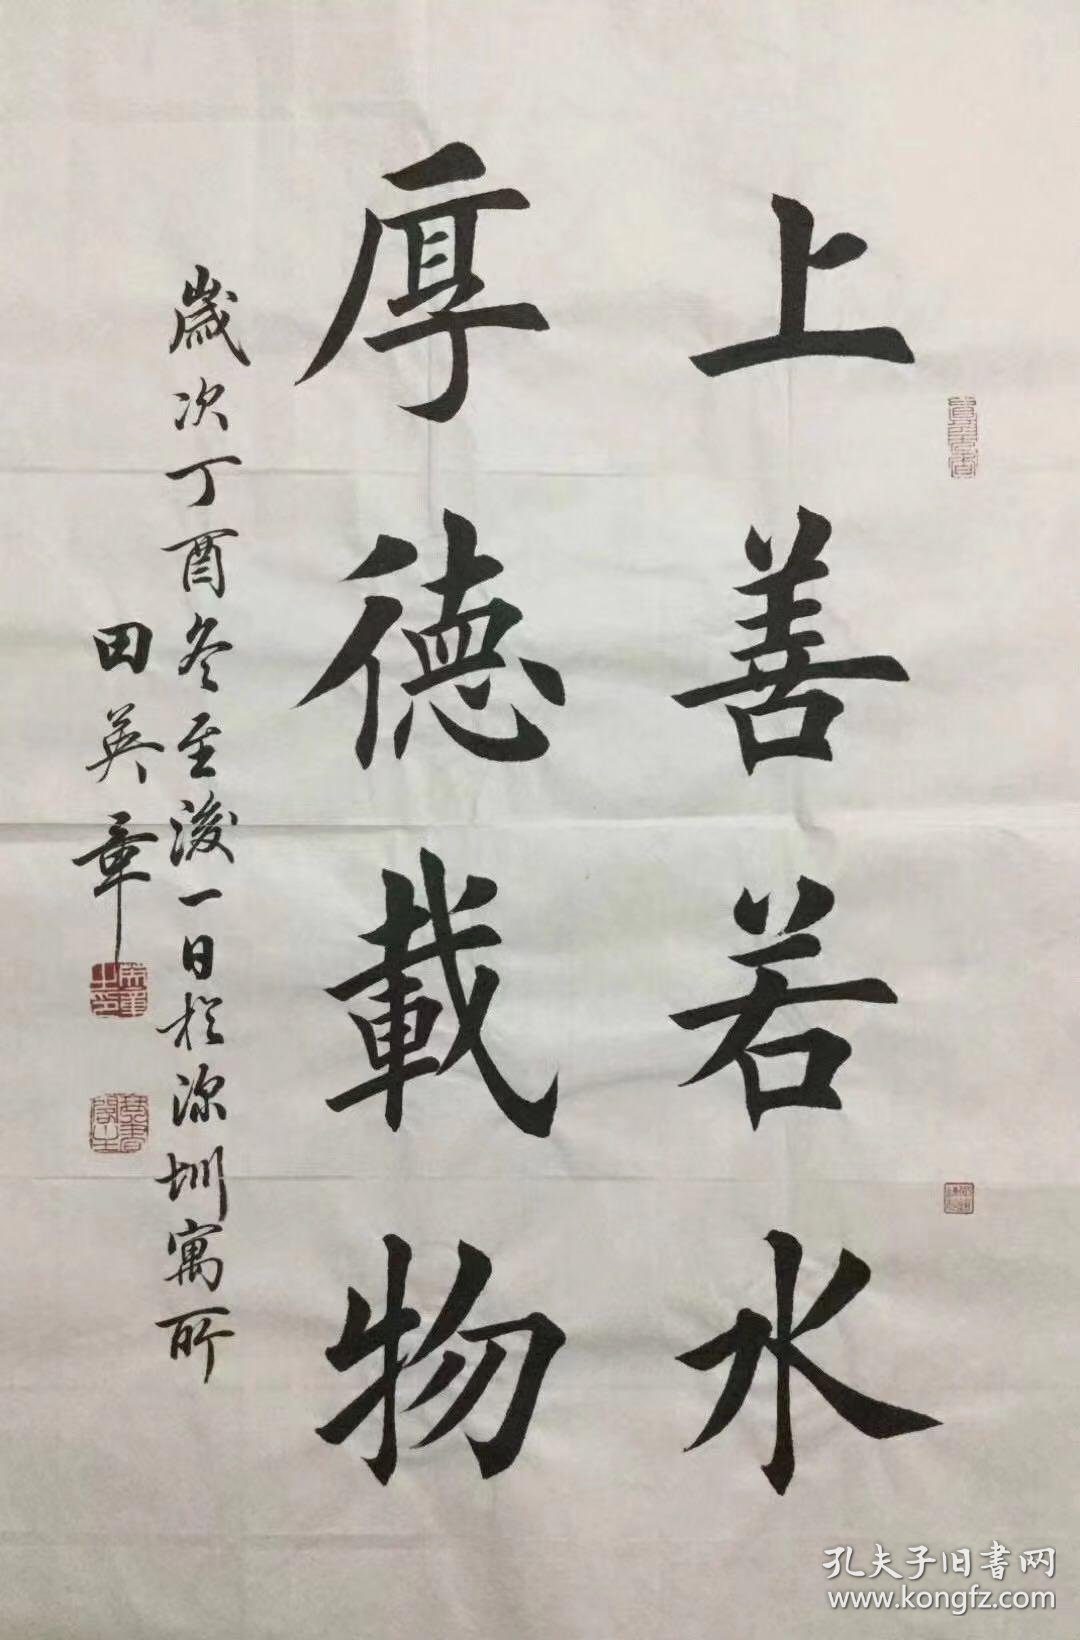 上善若水
厚德載物
歲次丁酉冬至後一日於深圳寓所
田英章
孔夫子旧書网
www.kongfz.com